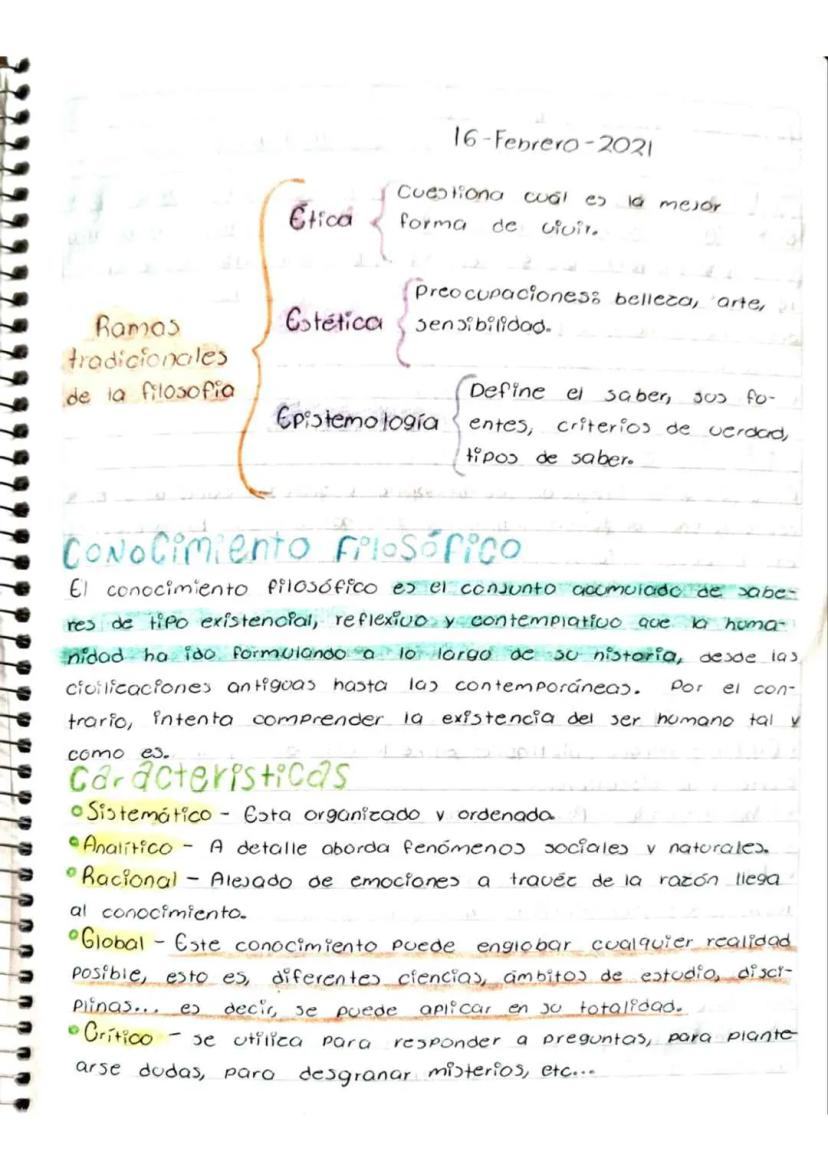 16-Febrero-2021
Ramas
tradicionales
de la filosofía
Ética
Cuestiona cuál es la mejor
forma de vivir.
Estética
Preocupaciones: belleza, arte,
sensibilidad.
Epistemología
Define el saber, sus fu-
entes, criterios de verdad,
tipos de saber.
Conocimiento Filosófico
El conocimiento filosófico es el conjunto acumulado de sabe-
res de tipo existencial, reflexivo y contemplativo que la huma-
nidad ha ido formulando a lo largo de su historia, desde las
civilizaciones antiguas hasta las contemporáneas. Por el con-
trario, intenta comprender la existencia del ser humano tal y
como es.
Características
• Sistemático - Esta organizado y ordenada
• Analítico - A detalle aborda fenómenos sociales y naturales.
• Racional - Alejado de emociones a travéz de la razón llega
al conocimiento.
• Global - Este conocimiento puede englobar cualquier realidad
posible, esto es, diferentes ciencias, ámbitos de estudio, disci-
plinas... es decir, se puede aplicar en su totalidad.
• Crítico - se utiliza para responder a preguntas, para plante-
arse dudas, para desgranar misterios, etc...